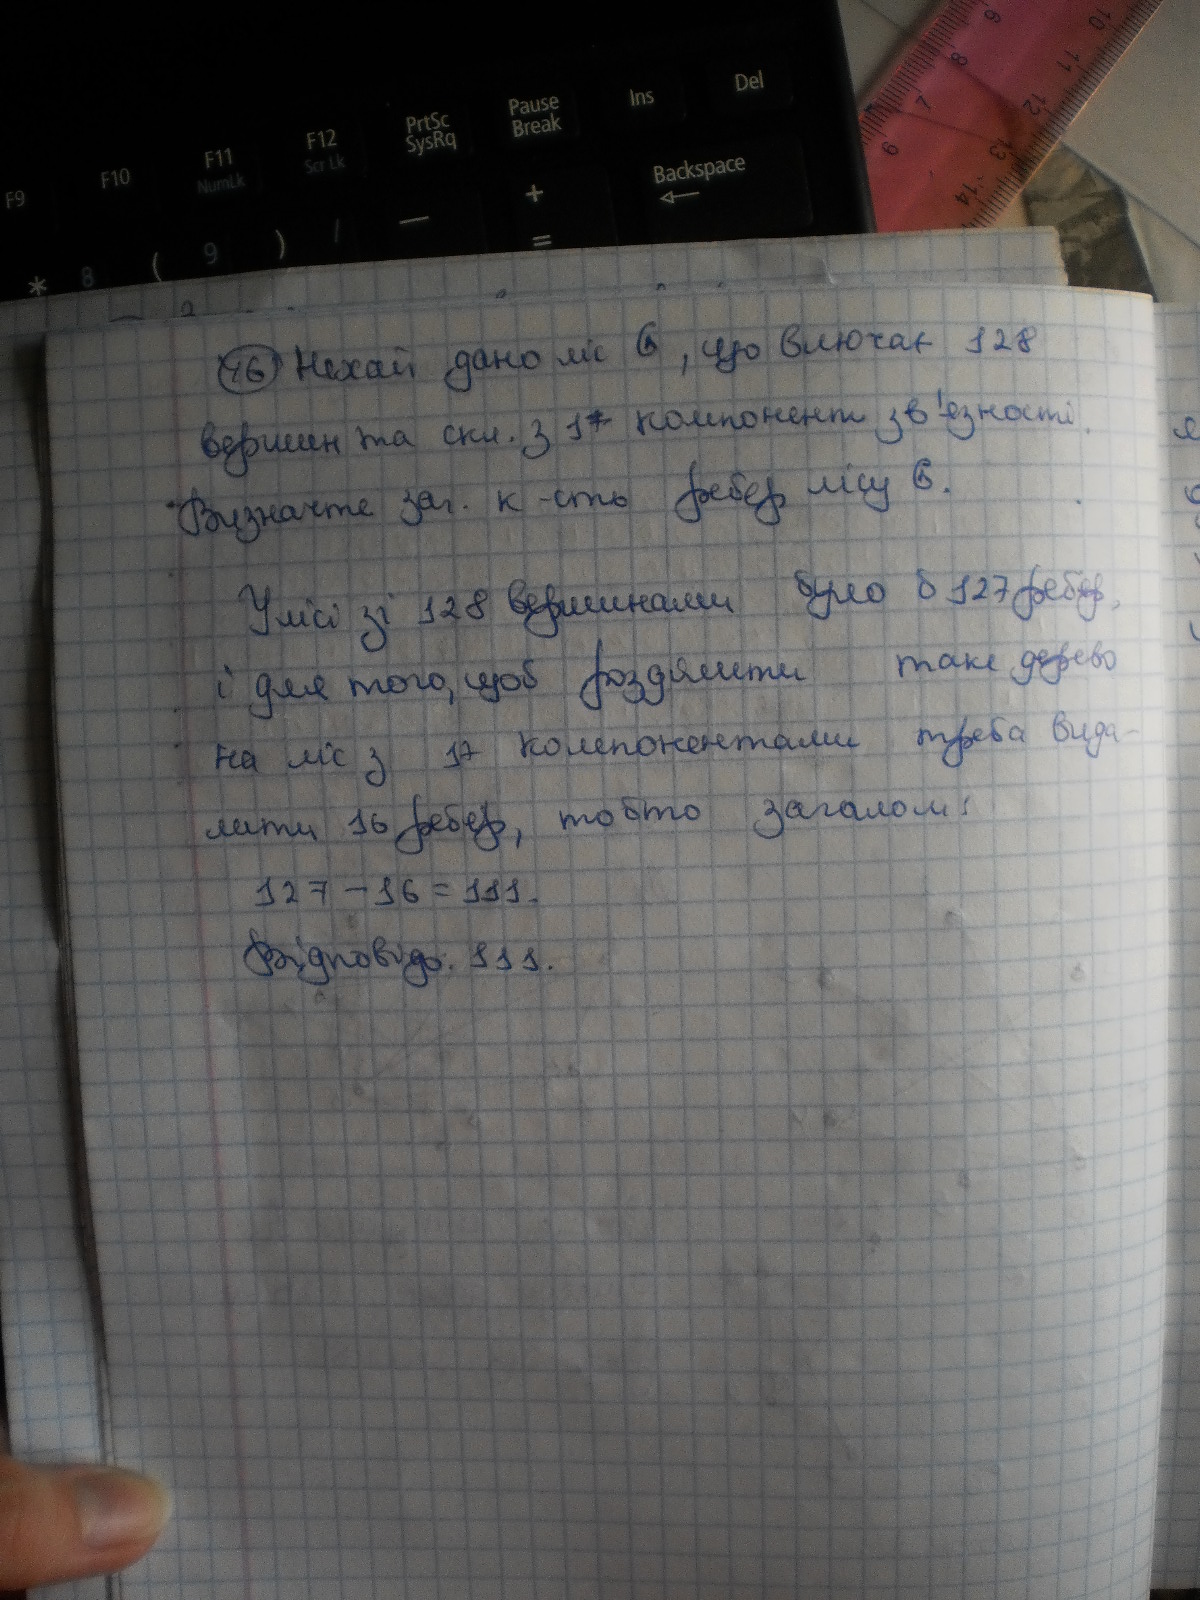 F9 F10 F11 NumLk F12 Scr Lk PrtSc SysRq Pause Break Ins Del
* 8 ( 9 ) / — + = Backspace
6 8 4 9 10 11 12 13 14
46 Нехай дано ліс G, що включає 128
вершин та скл. з 17 компонент зв'єзності.
Визначте заг. к-сть ребер лісу G.
У лісі зі 128 вершинами було б 127 ребер,
і для того, щоб розділити таке дерево
на ліс з 17 компонентами треба вида-
лити 16 ребер, тобто загалом:
127 - 16 = 111.
Відповідь. 111.